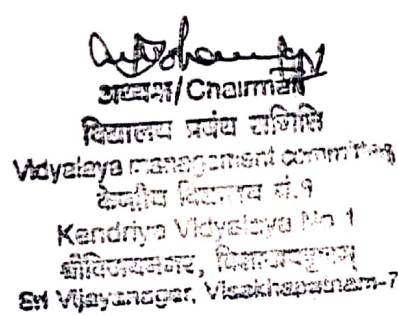 अध्यक्ष/Chairman
विद्यालय प्रबंध समिति
Vidyalaya management committee
केन्द्रीय विद्यालय सं.१
Kendriya Vidyalaya No 1
श्रीविजयनगर, विशाखापट्टणम्
Sri Vijayanagar, Visakhapatnam-7